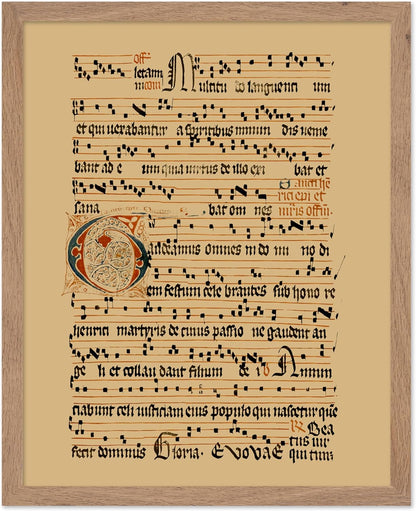 Off̄
letami M ultitu do languenti um
ni com
et qui vexabantur a spiritibus immun dis veme
bant ad e um quia virtus de illo exi bat et
sana bat om nes
S ancti he
rici epi et
mr̄is offm̄.
G audeamus omnes in do mi no di
em festum cele brantes sub hono re
henrici martyris de cuius passio ne gaudent an
ge li et collau dant filium de i ℣ A nnun
ciabunt celi iusticiam eius populo qui nascetur que
fecit dominus G loria. E V O V A E
℟ Bea
tus vir
qui tim